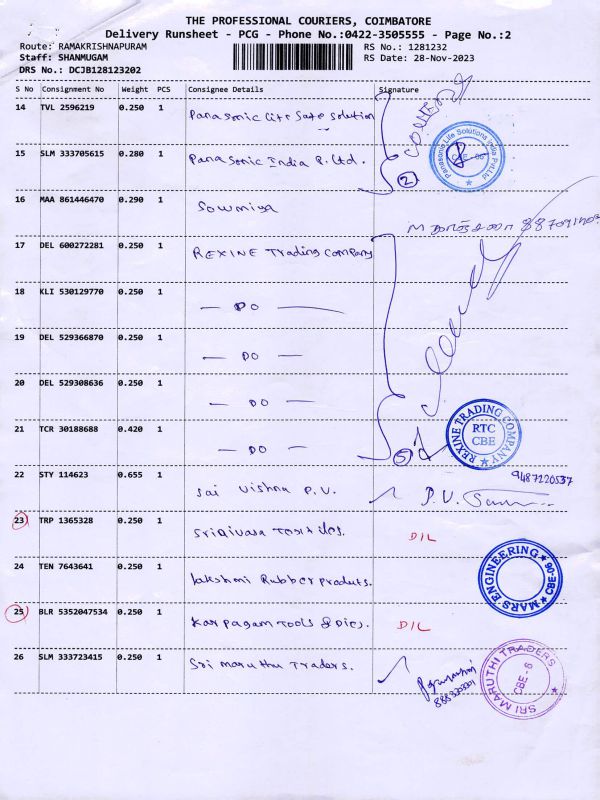 THE PROFESSIONAL COURIERS, COIMBATORE
Delivery Runsheet - PCG - Phone No.:0422-3505555 - Page No.:2
Route: RAMAKRISHNAPURAM RS No.: 1281232
Staff: SHANMUGAM RS Date: 28-Nov-2023
DRS No.: DCJB128123202
S No Consignment No Weight PCS Consignee Details Signature
14 TVL 2596219 0.250 1 Panasonic Life Solution
15 SLM 333705615 0.280 1 Panasonic India P. Ltd.
2
Panasonic Life Solutions India Pvt Ltd
CBE - 06
16 MAA 861446470 0.290 1 Sowmiya
17 DEL 600272281 0.250 1 REXINE Trading Company
18 KLI 530129770 0.250 1 — DO —
19 DEL 529366870 0.250 1 — DO —
20 DEL 529308636 0.250 1 — DO —
21 TCR 30188688 0.420 1 — DO —
5
REXINE TRADING COMPANY
RTC
CBE
22 STY 114623 0.655 1 Sai Vishnu P.V.
9487220537
23 TRP 1365328 0.250 1 D/L
24 TEN 7643641 0.250 1 Lakshmi Rubber Produts.
MARS ENGINEERING CBE-06
25 BLR 5352047534 0.250 1 Karpagam Tools & Dies. D/L
26 SLM 333723415 0.250 1 Sri Maruthu Traders.
SRI MARUTHI TRADERS
CBE-6